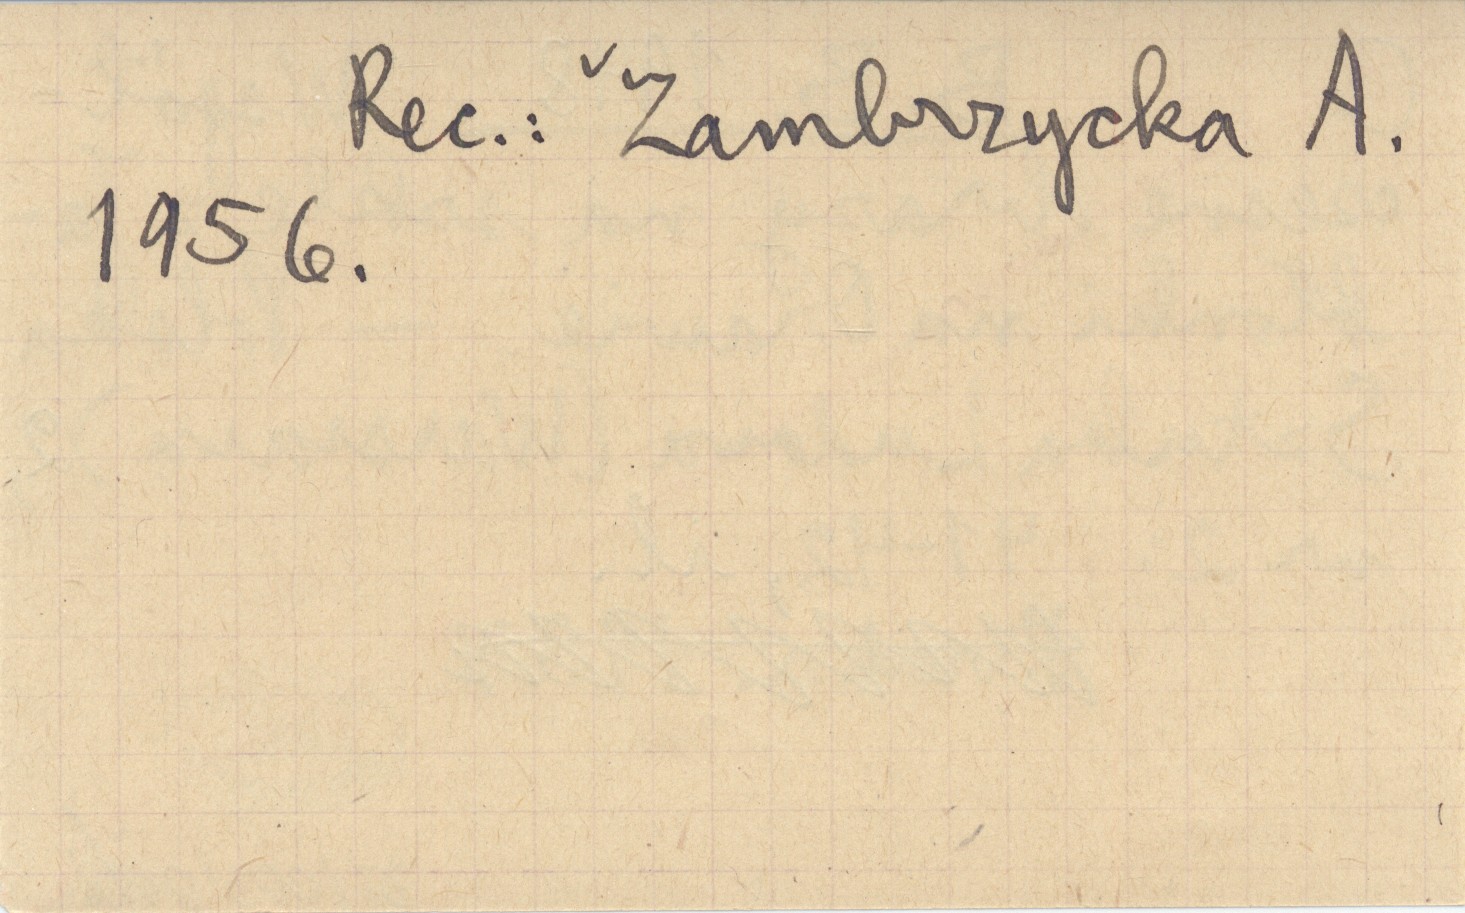 Rec.: Zambrzycka A.
1956.